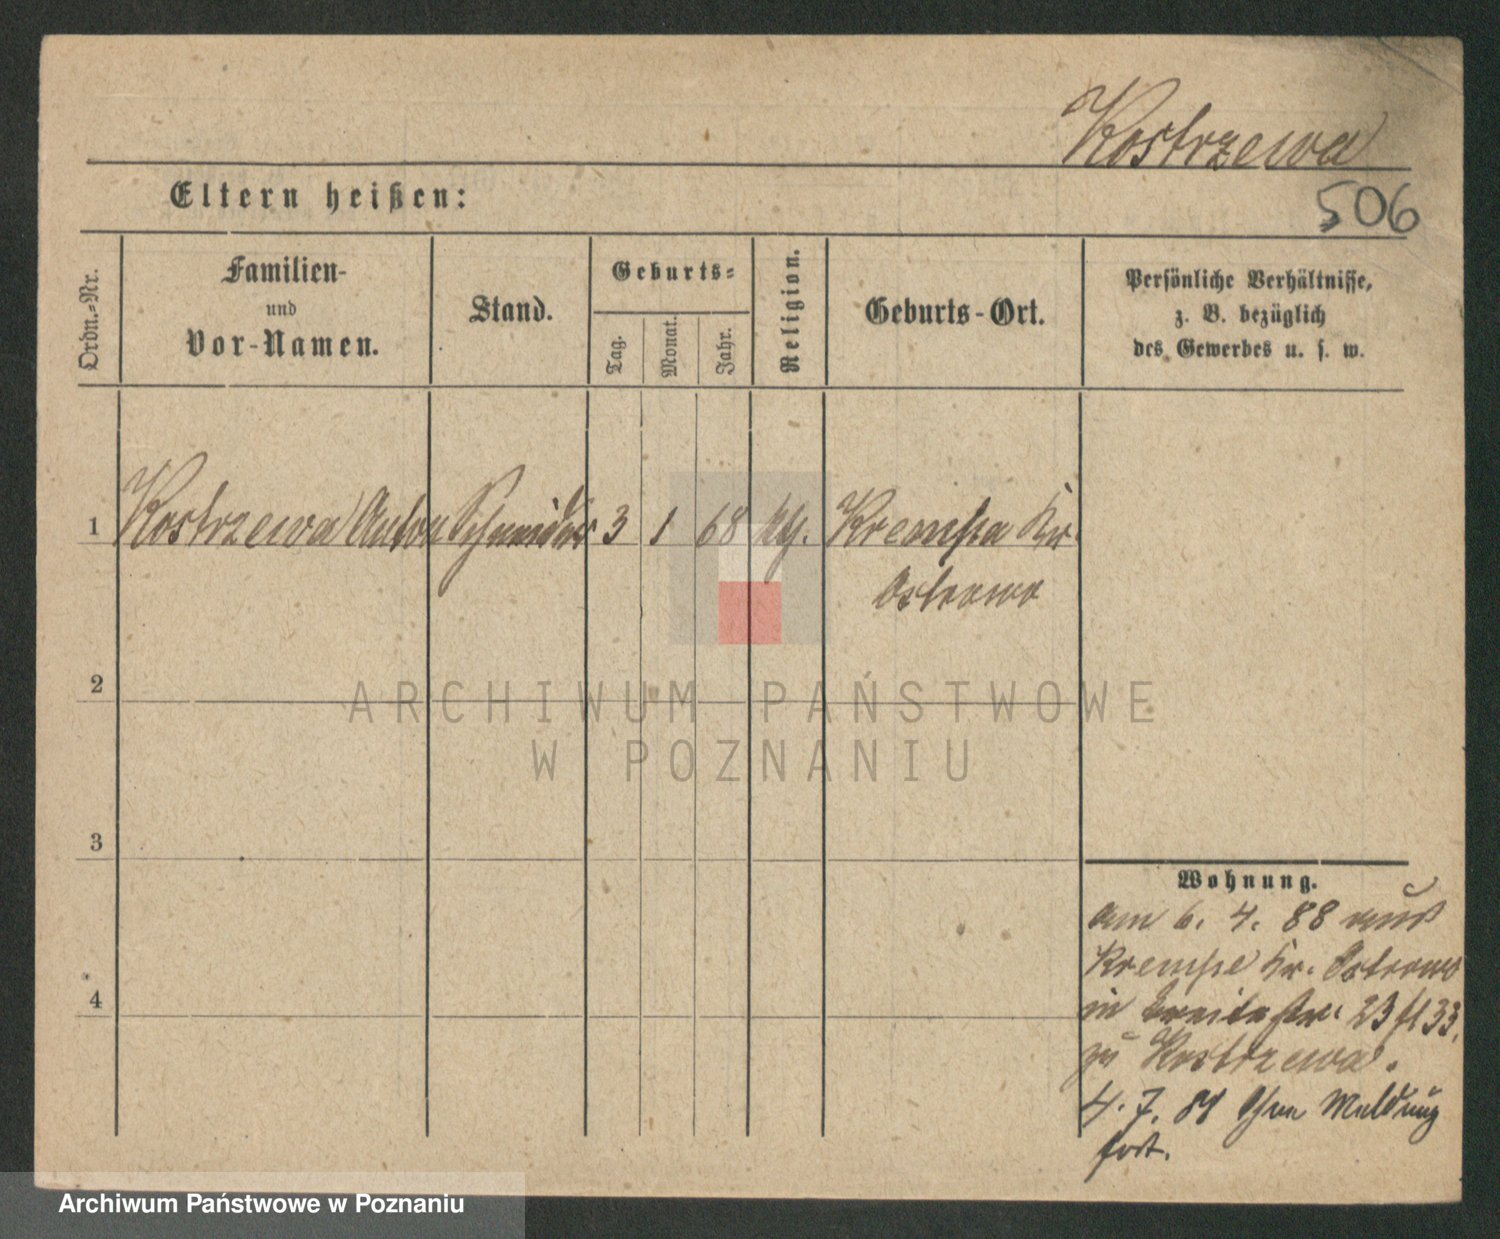 Kostrzewa
506
Eltern heißen:
Ordn.-Nr.
Familien-
und
Vor-Namen.
Stand.
Geburts-
Tag.
Monat.
Jahr.
Religion.
Geburts-Ort.
Persönliche Verhältnisse,
z. B. bezüglich
des Gewerbes u. s. w.
1 Kostrzewa Anton Schneider 3 1 68 kth. Krempa Kr.
Ostrowo
2
3
4
Wohnung.
am 6. 4. 88 aus
Krempe Kr. Ostrowo
in Breitestr. 23
zu Kostrzewa.
4. 7. Ohne Meldung
fort.
ARCHIWUM PAŃSTWOWE
W POZNANIU
Archiwum Państwowe w Poznaniu